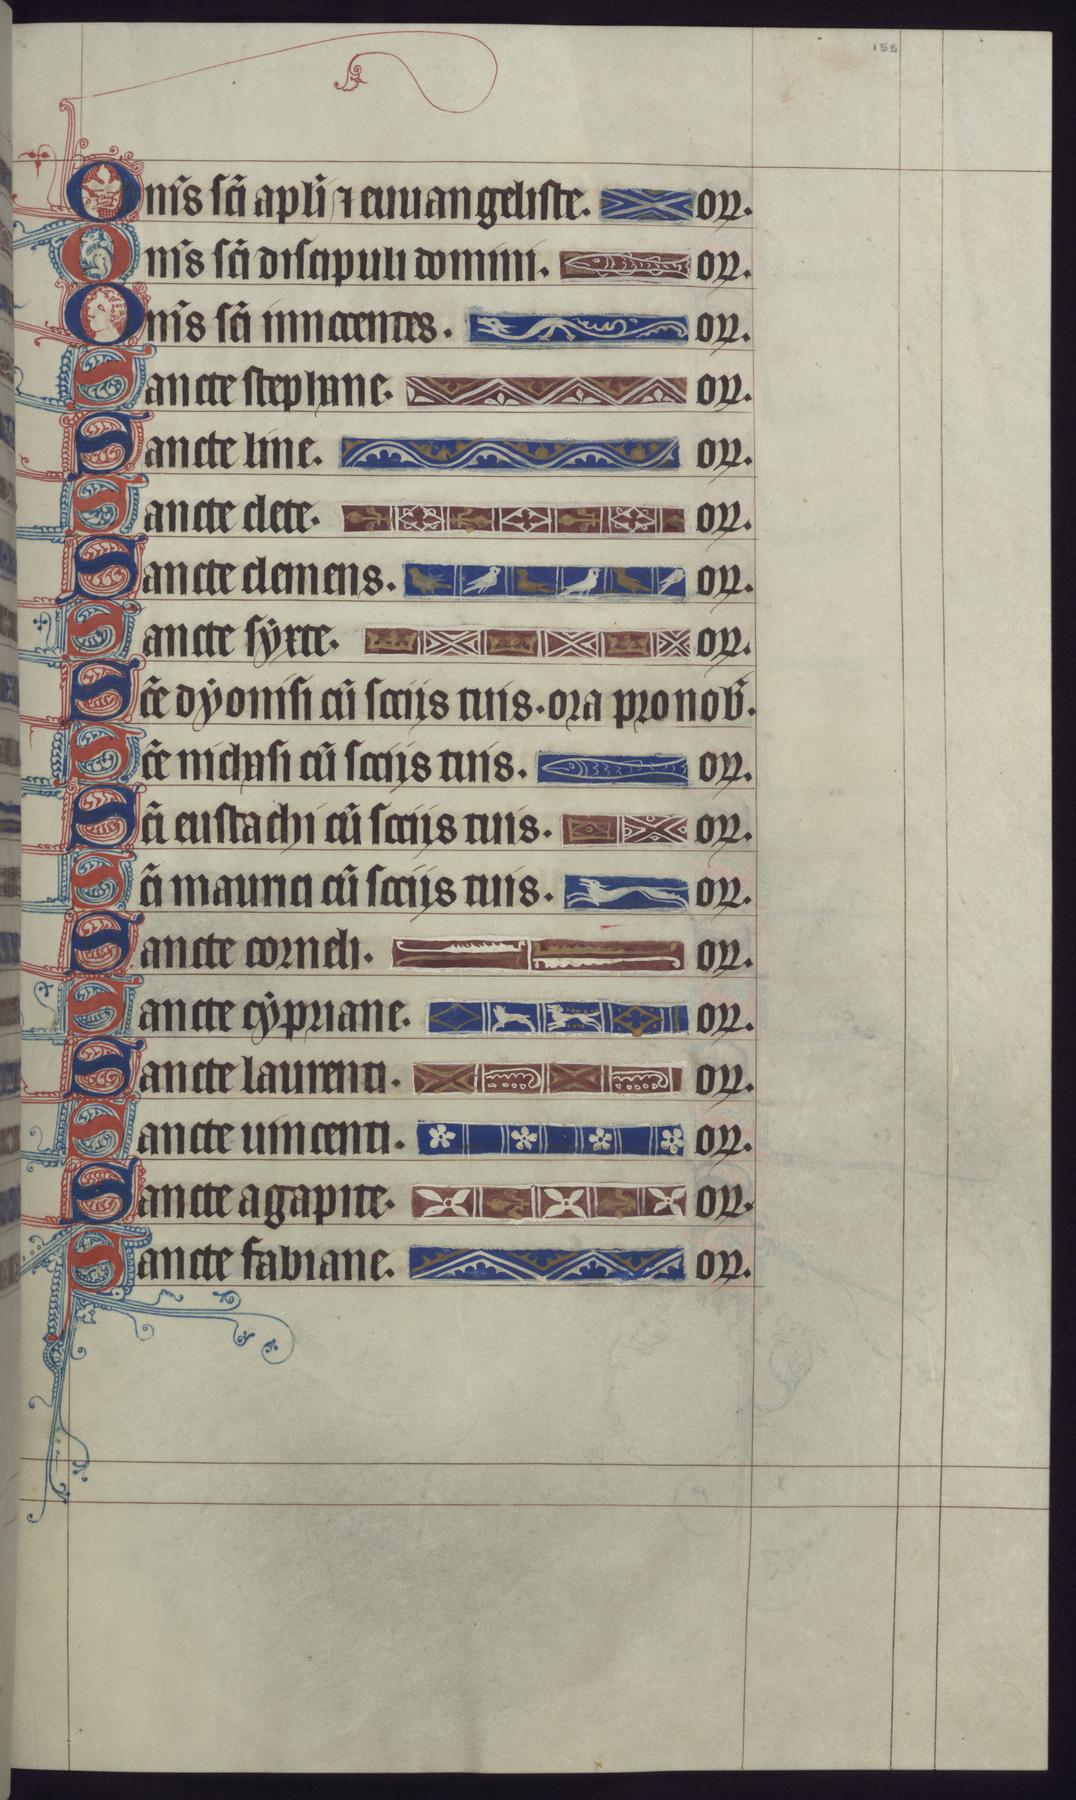 155
Om̃s sc̃i apl̃i ⁊ euuangeliste. or̃.
Om̃s sc̃i discipuli domini. or̃.
Om̃s sc̃i innocentes. or̃.
Sancte stephane. or̃.
Sancte line. or̃.
Sancte clete. or̃.
Sancte clemens. or̃.
Sancte sẏxte. or̃.
Sc̃e dẏonisi cũ sociis tuis. ora pro nob̃.
Sc̃e nichasi cũ sociis tuis. or̃.
Sc̃i eustachi cũ sociis tuis. or̃.
Sc̃i maurici cũ sociis tuis. or̃.
Sancte corneli. or̃.
Sancte cẏpriane. or̃.
Sancte laurenti. or̃.
Sancte uincenti. or̃.
Sancte agapite. or̃.
Sancte fabiane. or̃.